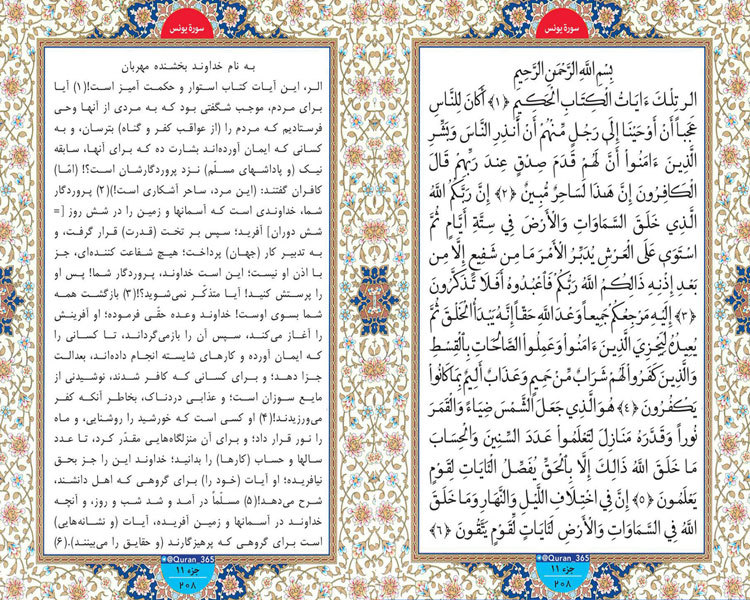 سورة یونس
بِسْمِ اللَّهِ الرَّحْمَنِ الرَّحِيمِ
الر تِلْكَ ءَايَاتُ الْكِتَابِ الْحَكِيمِ ﴿۱﴾ أَكَانَ لِلنَّاسِ
عَجَبًا أَنْ أَوْحَيْنَا إِلَى رَجُلٍ مِّنْهُمْ أَنْ أَنذِرِ النَّاسَ وَبَشِّرِ
الَّذِينَ ءَامَنُواْ أَنَّ لَهُمْ قَدَمَ صِدْقٍ عِندَ رَبِّهِمْ قَالَ
الْكَافِرُونَ إِنَّ هَذَا لَسَاحِرٌ مُّبِينٌ ﴿۲﴾ إِنَّ رَبَّكُمُ اللَّهُ
الَّذِي خَلَقَ السَّمَاوَاتِ وَالْأَرْضَ فِي سِتَّةِ أَيَّامٍ ثُمَّ
اسْتَوَى عَلَى الْعَرْشِ يُدَبِّرُ الْأَمْرَ مَا مِن شَفِيعٍ إِلَّا مِن
بَعْدِ إِذْنِهِ ذَالِكُمُ اللَّهُ رَبُّكُمْ فَاعْبُدُوهُ أَفَلَا تَذَكَّرُونَ
﴿۳﴾ إِلَيْهِ مَرْجِعُكُمْ جَمِيعًا وَعْدَ اللَّهِ حَقًّا إِنَّهُ يَبْدَأُ الْخَلْقَ ثُمَّ
يُعِيدُهُ لِيَجْزِيَ الَّذِينَ ءَامَنُواْ وَعَمِلُواْ الصَّالِحَاتِ بِالْقِسْطِ
وَالَّذِينَ كَفَرُواْ لَهُمْ شَرَابٌ مِّنْ حَمِيمٍ وَعَذَابٌ أَلِيمٌ بِمَا كَانُواْ
يَكْفُرُونَ ﴿۴﴾ هُوَ الَّذِي جَعَلَ الشَّمْسَ ضِيَاءً وَالْقَمَرَ
نُورًا وَقَدَّرَهُ مَنَازِلَ لِتَعْلَمُواْ عَدَدَ السِّنِينَ وَالْحِسَابَ
مَا خَلَقَ اللَّهُ ذَالِكَ إِلَّا بِالْحَقِّ يُفَصِّلُ الْآيَاتِ لِقَوْمٍ
يَعْلَمُونَ ﴿۵﴾ إِنَّ فِي اخْتِلَافِ اللَّيْلِ وَالنَّهَارِ وَمَا خَلَقَ
اللَّهُ فِي السَّمَاوَاتِ وَالْأَرْضِ لَآيَاتٍ لِّقَوْمٍ يَتَّقُونَ ﴿۶﴾
@Quran_365
جزء ۱۱
۲۰۸
سورة یونس
به نام خداوند بخشنده مهربان
الر، این آیات کتاب استوار و حکمت آمیز است!(۱) آیا
برای مردم، موجب شگفتی بود که به مردی از آنها وحی
فرستادیم که مردم را (از عواقب کفر و گناه) بترسان، و به
کسانی که ایمان آورده‌اند بشارت ده که برای آنها، سابقه
نیک (و پاداشهای مسلّم) نزد پروردگارشان است؟! (امّا)
کافران گفتند: (این مرد، ساحر آشکاری است!)(۲) پروردگار
شما، خداوندی است که آسمانها و زمین را در شش روز [=
شش دوران] آفرید؛ سپس بر تخت (قدرت) قرار گرفت، و
به تدبیر کار (جهان) پرداخت؛ هیچ شفاعت کننده‌ای، جز
با اذن او نیست؛ این است خداوند، پروردگار شما! پس او
را پرستش کنید! آیا متذکّر نمی‌شوید؟!(۳) بازگشت همه
شما بسوی اوست! خداوند وعده حقّی فرموده؛ او آفرینش
را آغاز می‌کند، سپس آن را بازمی‌گرداند، تا کسانی را
که ایمان آورده و کارهای شایسته انجام داده‌اند، بعدالت
جزا دهد؛ و برای کسانی که کافر شدند، نوشیدنی از
مایع سوزان است؛ و عذابی دردناک، بخاطر آنکه کفر
می‌ورزیدند!(۴) او کسی است که خورشید را روشنایی، و ماه
را نور قرار داد؛ و برای آن منزلگاه‌هایی مقدّر کرد، تا عدد
سالها و حساب (کارها) را بدانید؛ خداوند این را جز بحق
نیافریده؛ او آیات (خود را) برای گروهی که اهل دانشند،
شرح می‌دهد!(۵) مسلّماً در آمد و شد شب و روز، و آنچه
خداوند در آسمانها و زمین آفریده، آیات (و نشانه‌هایی)
است برای گروهی که پرهیزگارند (و حقایق را می‌بینند).(۶)
@Quran_365
جزء ۱۱
۲۰۸